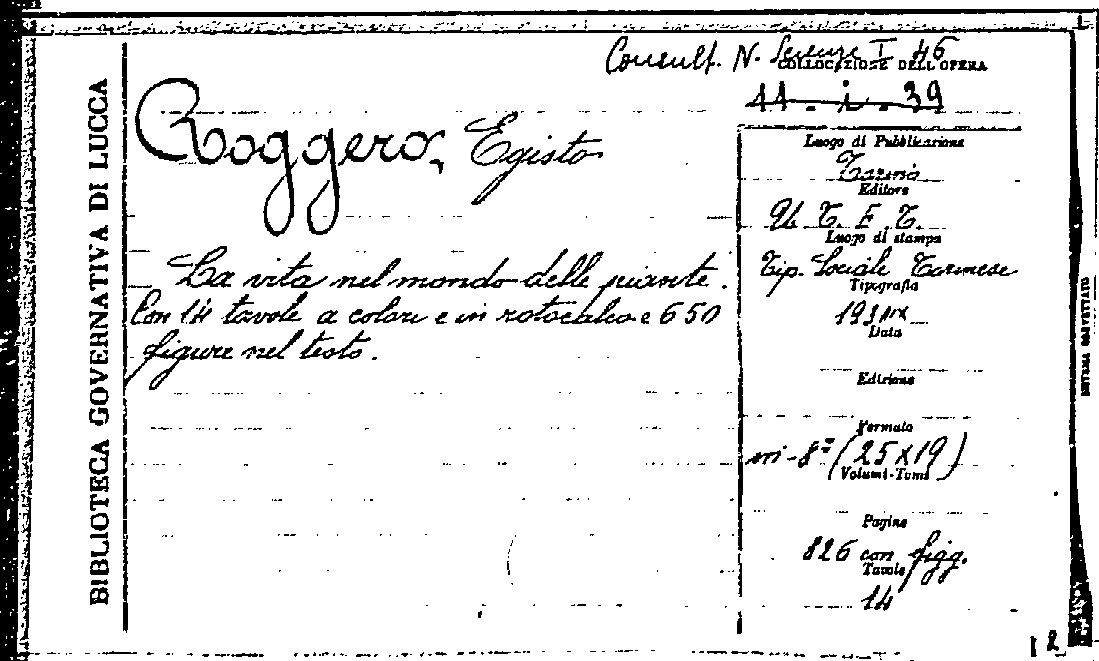 BIBLIOTECA GOVERNATIVA DI LUCCA
Consult. N. Scienze I 46
COLLOCAZIONE DELL'OPERA
11 - i - 39
Roggero, Egisto
La vita nel mondo delle piante.
Con 14 tavole a colori e in rotocalco e 650
figure nel testo.
Luogo di Pubblicazione
Torino
Editore
U. T. E. T.
Luogo di stampa
Tip. Sociale Torinese
Tipografia
Data
Edizione
Formato
in-8º (25x19)
Volumi-Tomi
Pagine
826 con figg.
Tavole
14
12